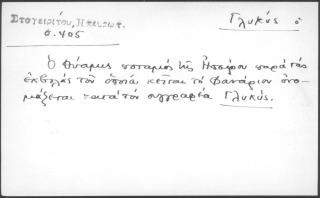 Στουγιρίτου, Ηπειρωτ.
σ. 405
Γλυκύς ὁ
Ὁ Θύαμις ποταμὸς τῆς Ἠπείρου παρὰ τὰς
ἐκβολὰς τοῦ ὁποίου κεῖται τὸ Φανάριον ὀνο-
μάζεται κατὰ τὸν συγγραφέα Γλυκύς.